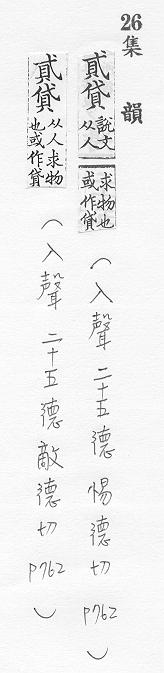 26集 韻
貣貸說文从人求物也或作貸(入聲 二十五德 惕德切 P762)
貣貸从人求物也或作貸(入聲 二十五德 敵德切 P762)